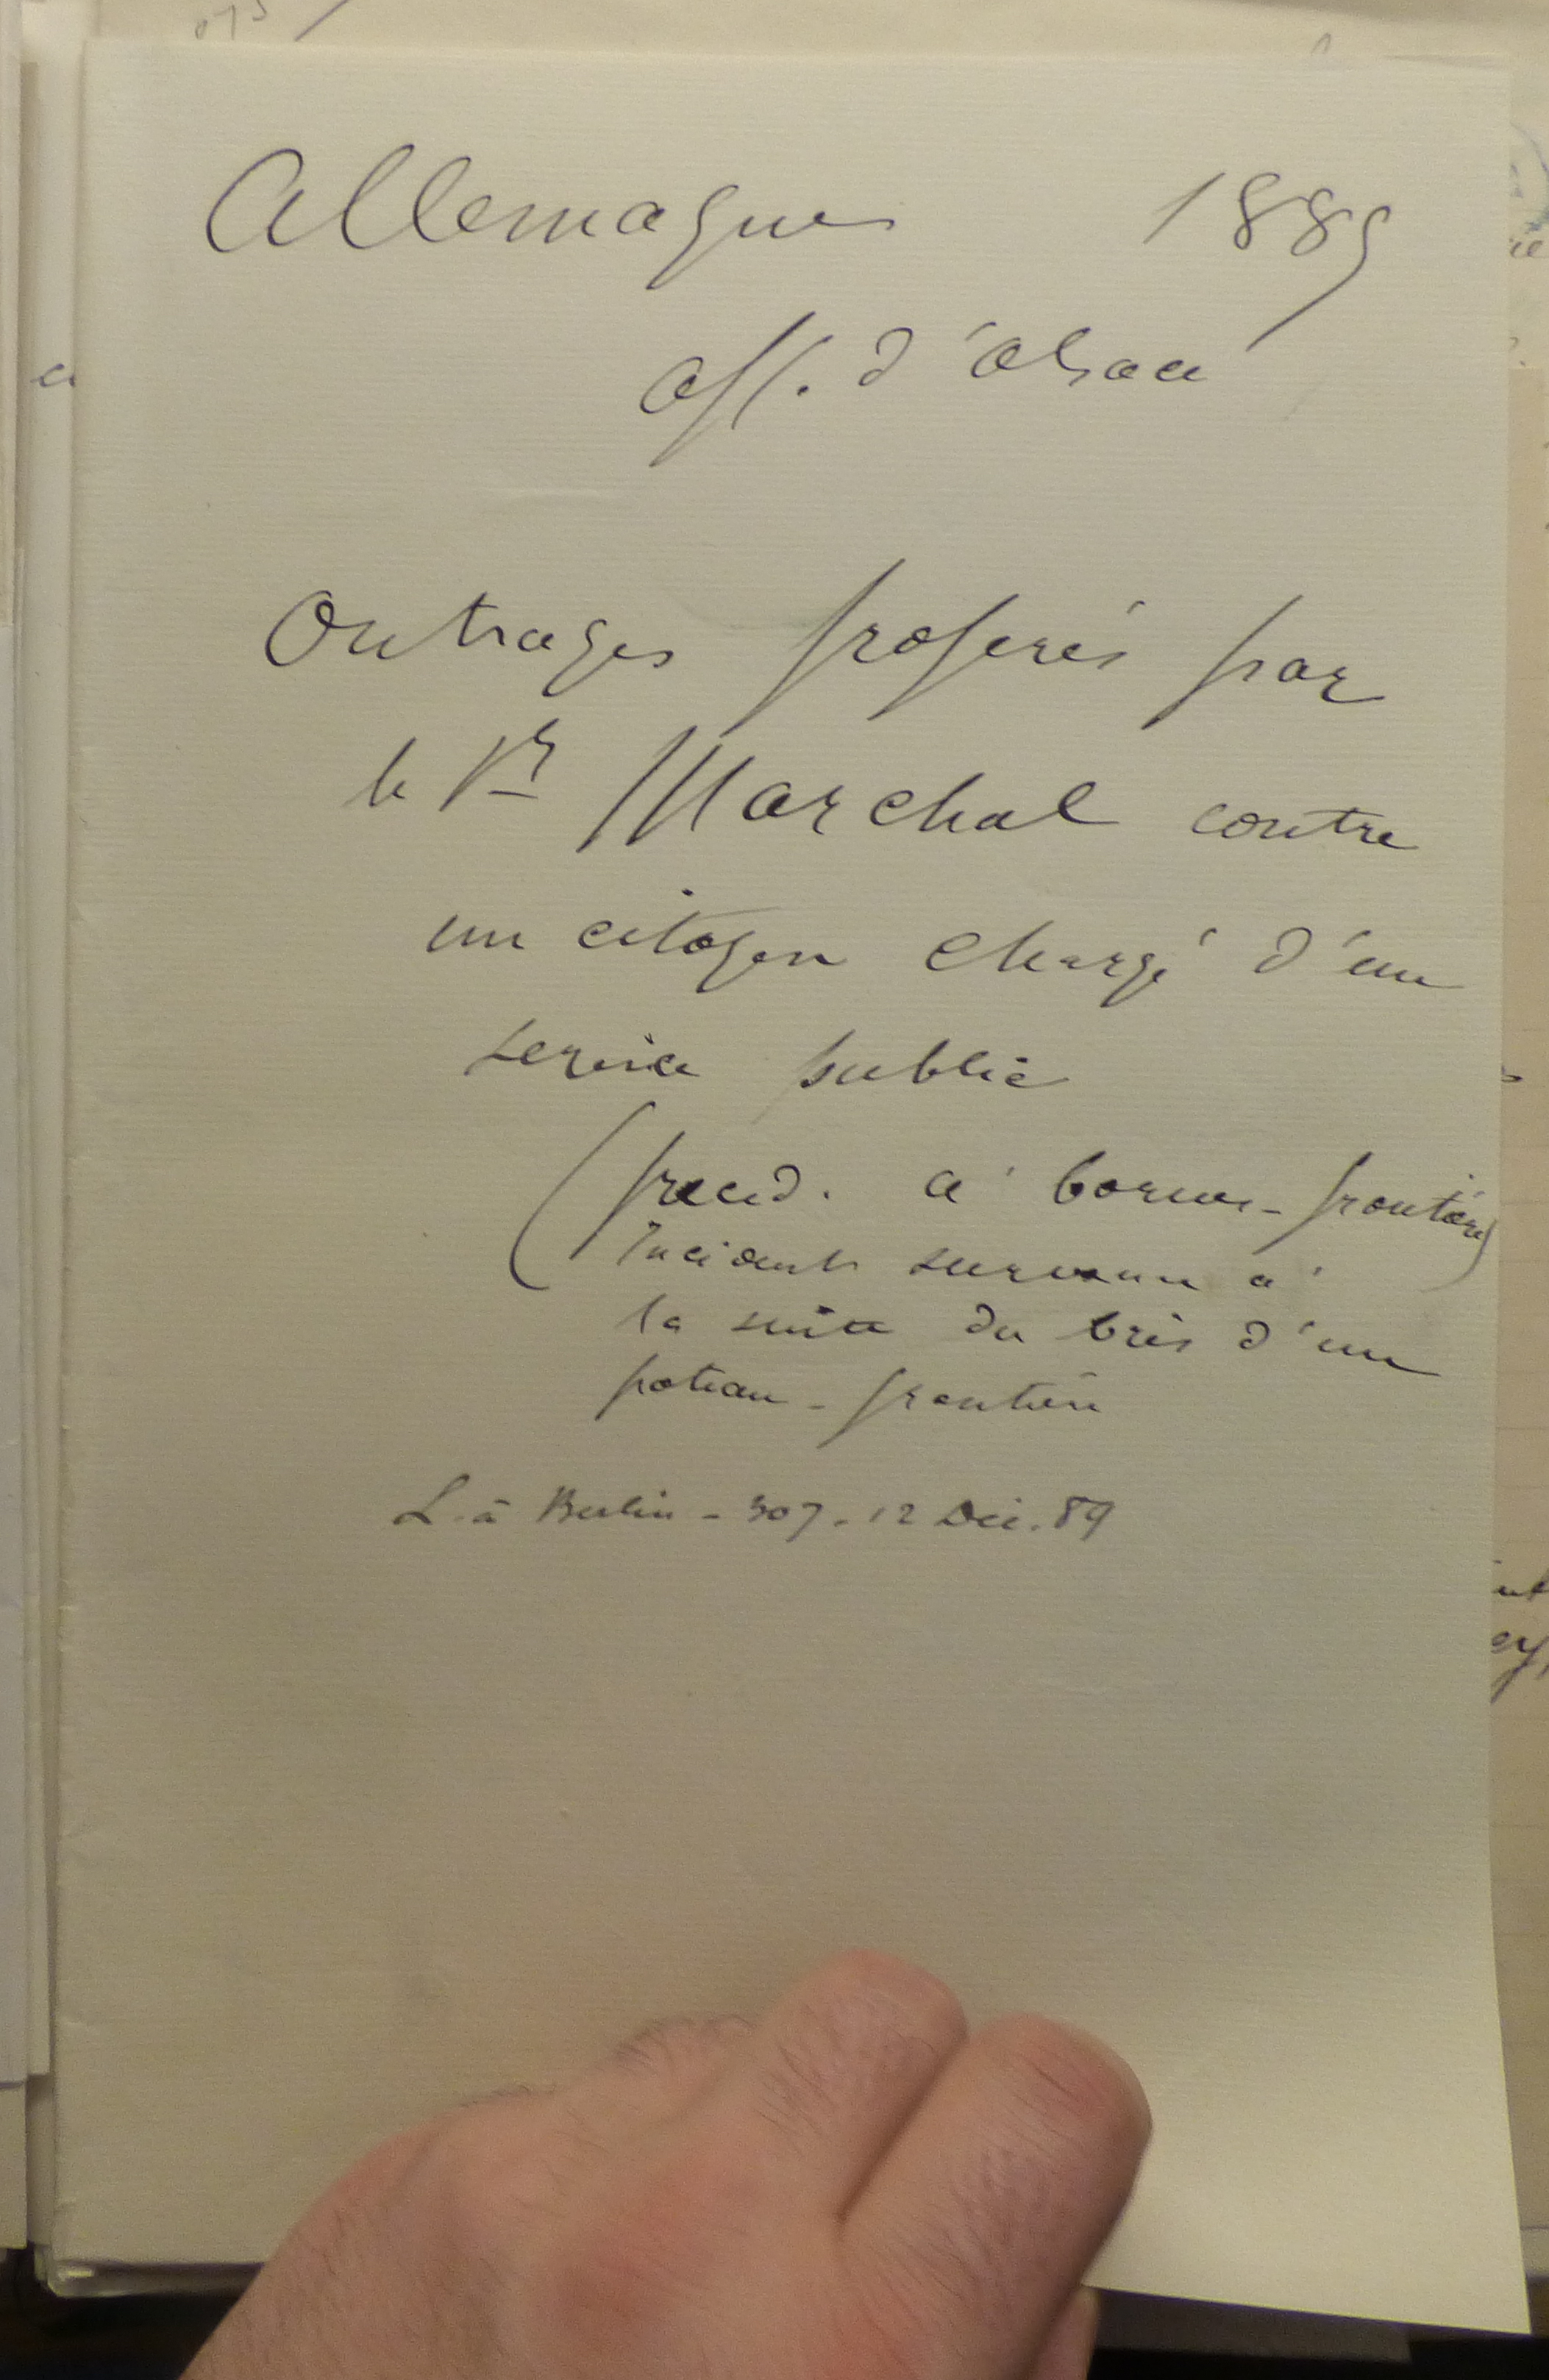 Allemagne 1889
Aff. d'Alsace
Outrages proferés par
le Sr Marchal contre
un citoyen chargé d'un
service public
(preced. à bornes-frontière)
Incident survenu à
la suite du bris d'un
poteau-frontière
L. à Berlin - 307 - 12 Déc. 89